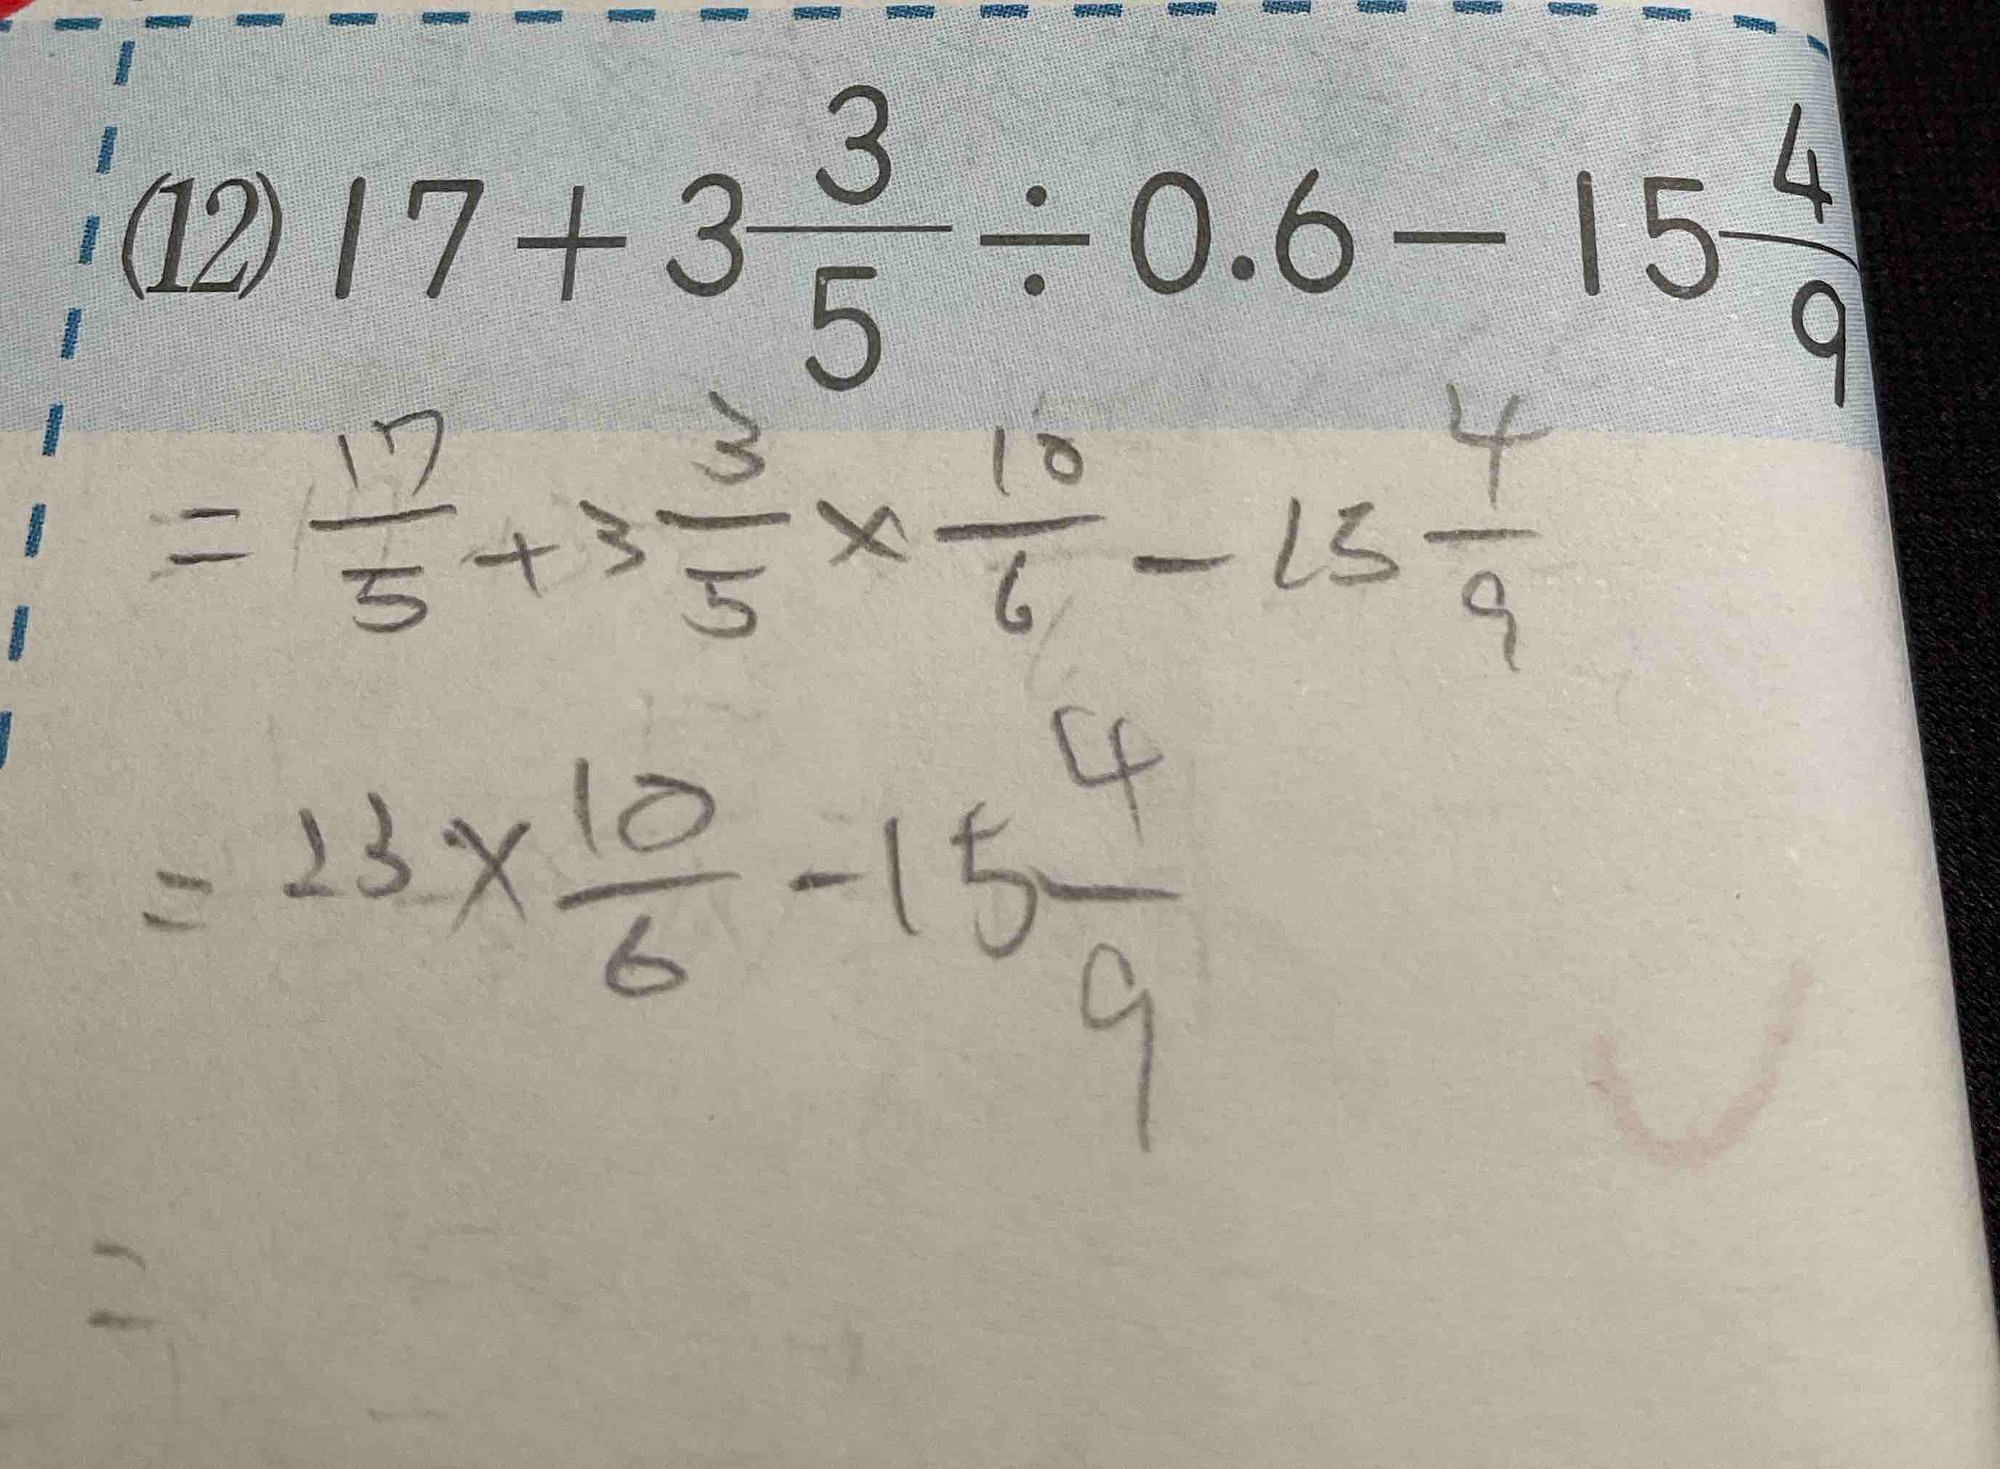 (12) 17 + 3 3/5 ÷ 0.6 − 15 4/9
= 17/5 + 3 3/5 × 10/6 − 15 4/9
= 23 × 10/6 − 15 4/9
=